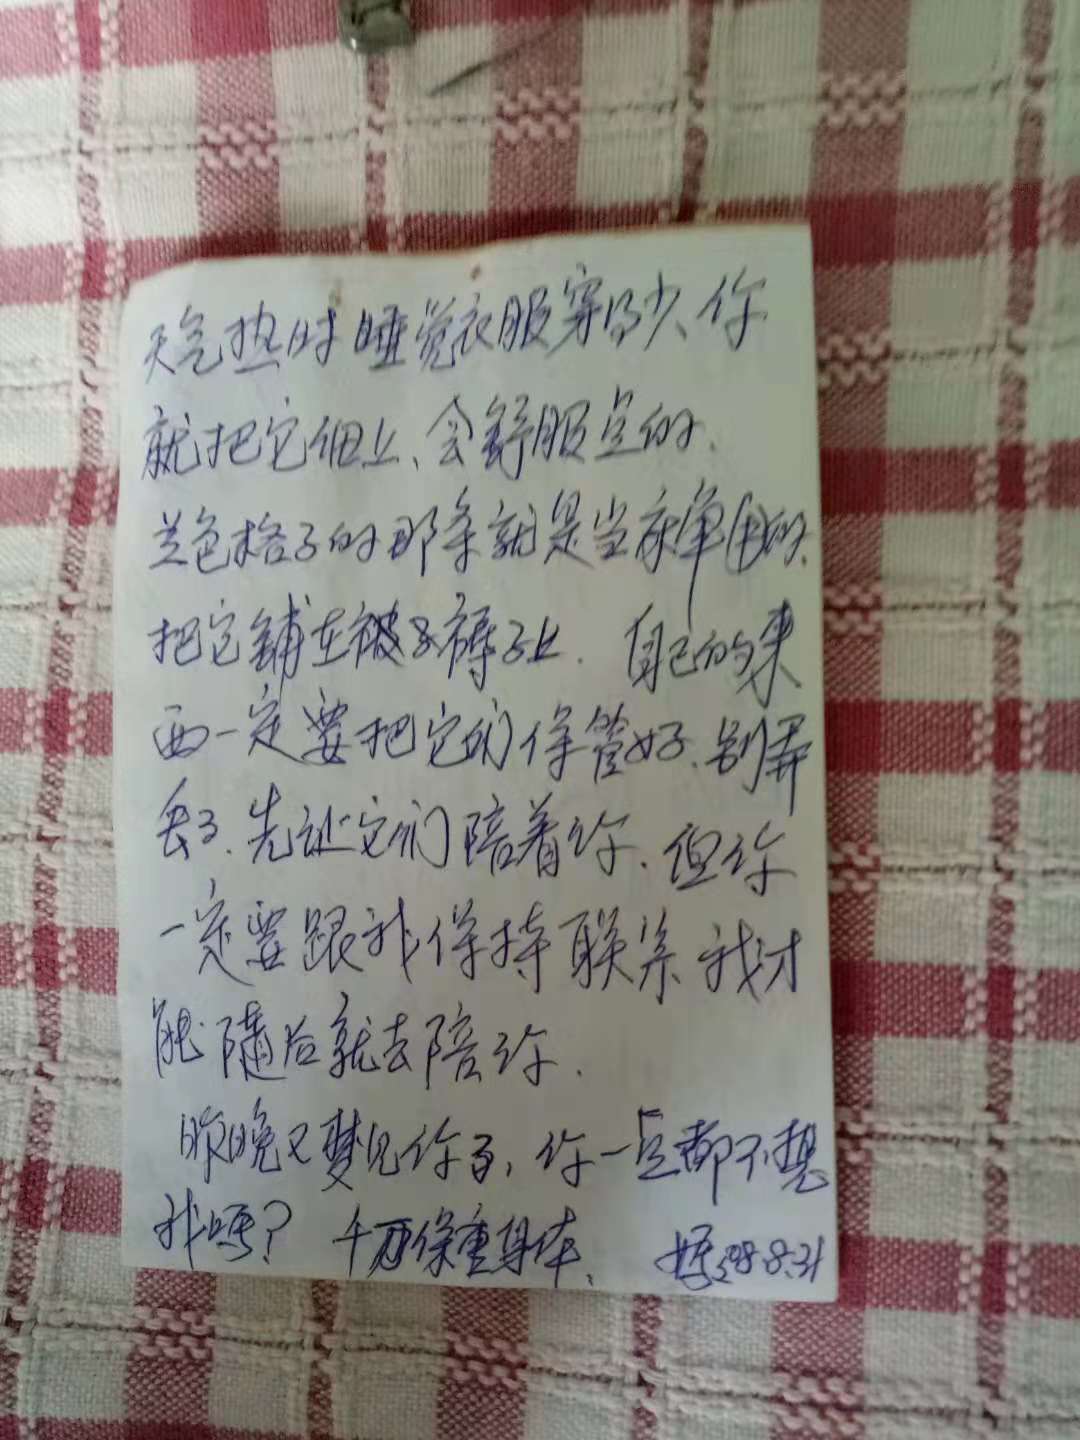 天气热时睡觉衣服穿的少、你
就把它细上、会舒服点的、
兰色格子的那条就是当床单用的、
把它铺在被子褥子上. 自己的东
西一定要把它们保管好、别弄
丢了、先让它们陪着你、但你
一定要跟我保持联系 我才
能随后就去陪你.
昨晚又梦见你了, 你一点都不想
我吗? 千万保重身体、 98.8.31